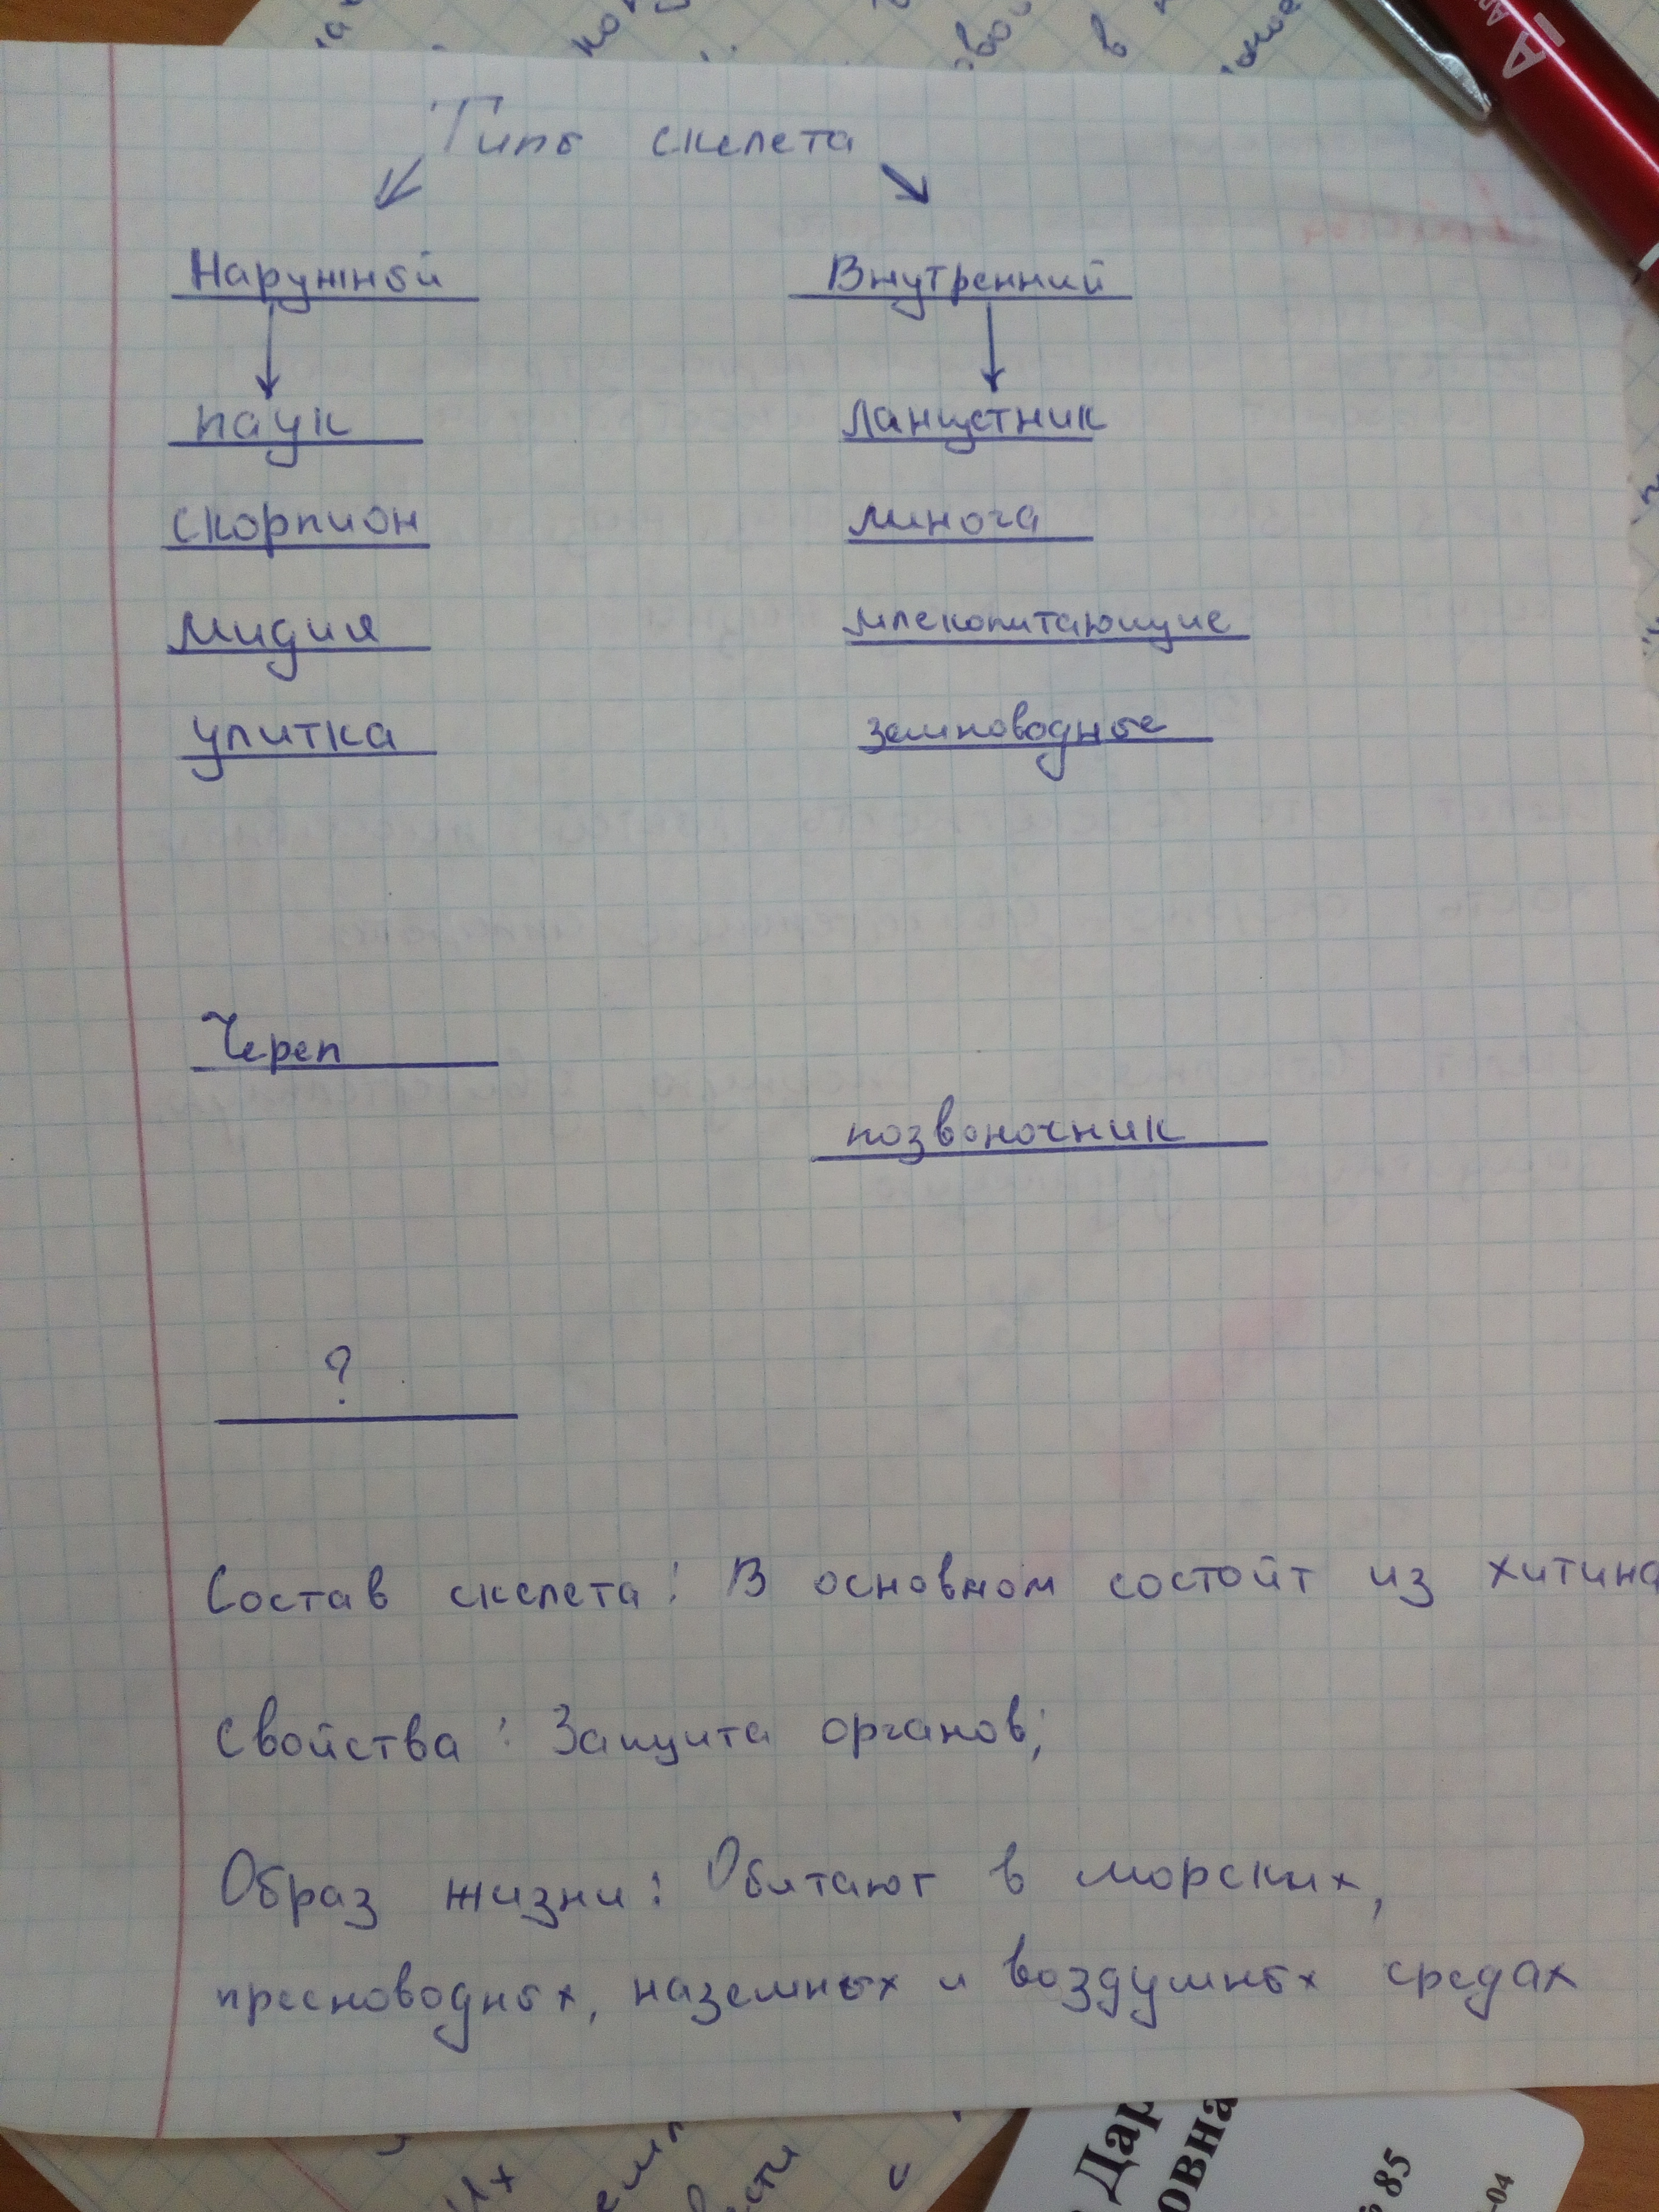 Типы скелета
Наружный Внутренний
паук Ланцетник
скорпион минога
мидия млекопитающие
улитка земноводные
Череп
позвоночник
?
Состав скелета: В основном состоит из хитина
Свойства: Защита органов;
Образ жизни: Обитают в морских,
пресноводных, наземных и воздушных средах
Дар
овна
85
-04